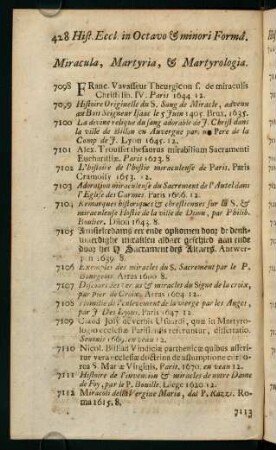 428 Hist. Eccl. in Octavo & minori Formâ.
Miracula, Martyria, & Martyrologia.
7098 Franc. Vavasseur Theurgicon s. de miraculis
Christi lib. IV. Paris 1644. 12.
7099 Histoire Originelle du S. Sang de Miracle, advenu
au Bois Seigneur Isaac le 5 Juin 1405. Brux. 1635.
7100 La divine relique du sang adorable de J. Christ dans
la ville de Billon en Auvergne par un Pere de la
Comp de J. Lyon 1645. 12.
7101 Alex. Trousset thesaurus mirabilium Sacramenti
Eucharistiæ. Paris 1623. 8
7102 L'histoire de l'hostie miraculeuse de Paris. Paris
Cramoisy 1653. 12.
7103 Adoration miraculeuse du Sacrement de l'Autel dans
l'Eglise des Carmes. Paris 1616. 12.
7104 Remarques historiques & chrestiennes sur le S. &
miraculeuse Hostie de la ville de Dijon, par Philib.
Bouhier. Dijon 1643. 8.
7105 Amstelredams eer ende opkomen door de denk-
wuerdighe miraklen aldaer geschied aen ende
door het H Sacrament des Altaers. Antwer-
pen 1639. 8.
7106 Exemples des miracles du S. Sacrement par le P.
Bourgeois. Arras 1600. 8
7107 Discours des cer. & miracles du Signe de la croix,
par pier de Croix. Arras 1604. 12.
7108 Homilie de l'enlevement de la vierge par les Anges,
par J Des Lyons. Paris 1647 12.
7109 Claud Joly de verbis Usuardi, quæ in Martyro-
logio ecclesiæ Parisinæ referuntur, dissertatio.
Senonis 1669. en veau 12.
7110 Nicol. Billiad Vindiciæ parthenicæ quibus asseri-
tur vera ecclesiæ doctrina de assumptione corp-
rea S. Mariæ Virginis, Paris, 1670. en veau 12.
7111 Histoire de l'invention & miracles de notre Dame
de Foy, par le P. Bouille. Liege 1620. 12.
7112 Miracoli della Vergine Maria, dal P. Razzi. Ro-
ma 1615. 8.
7113